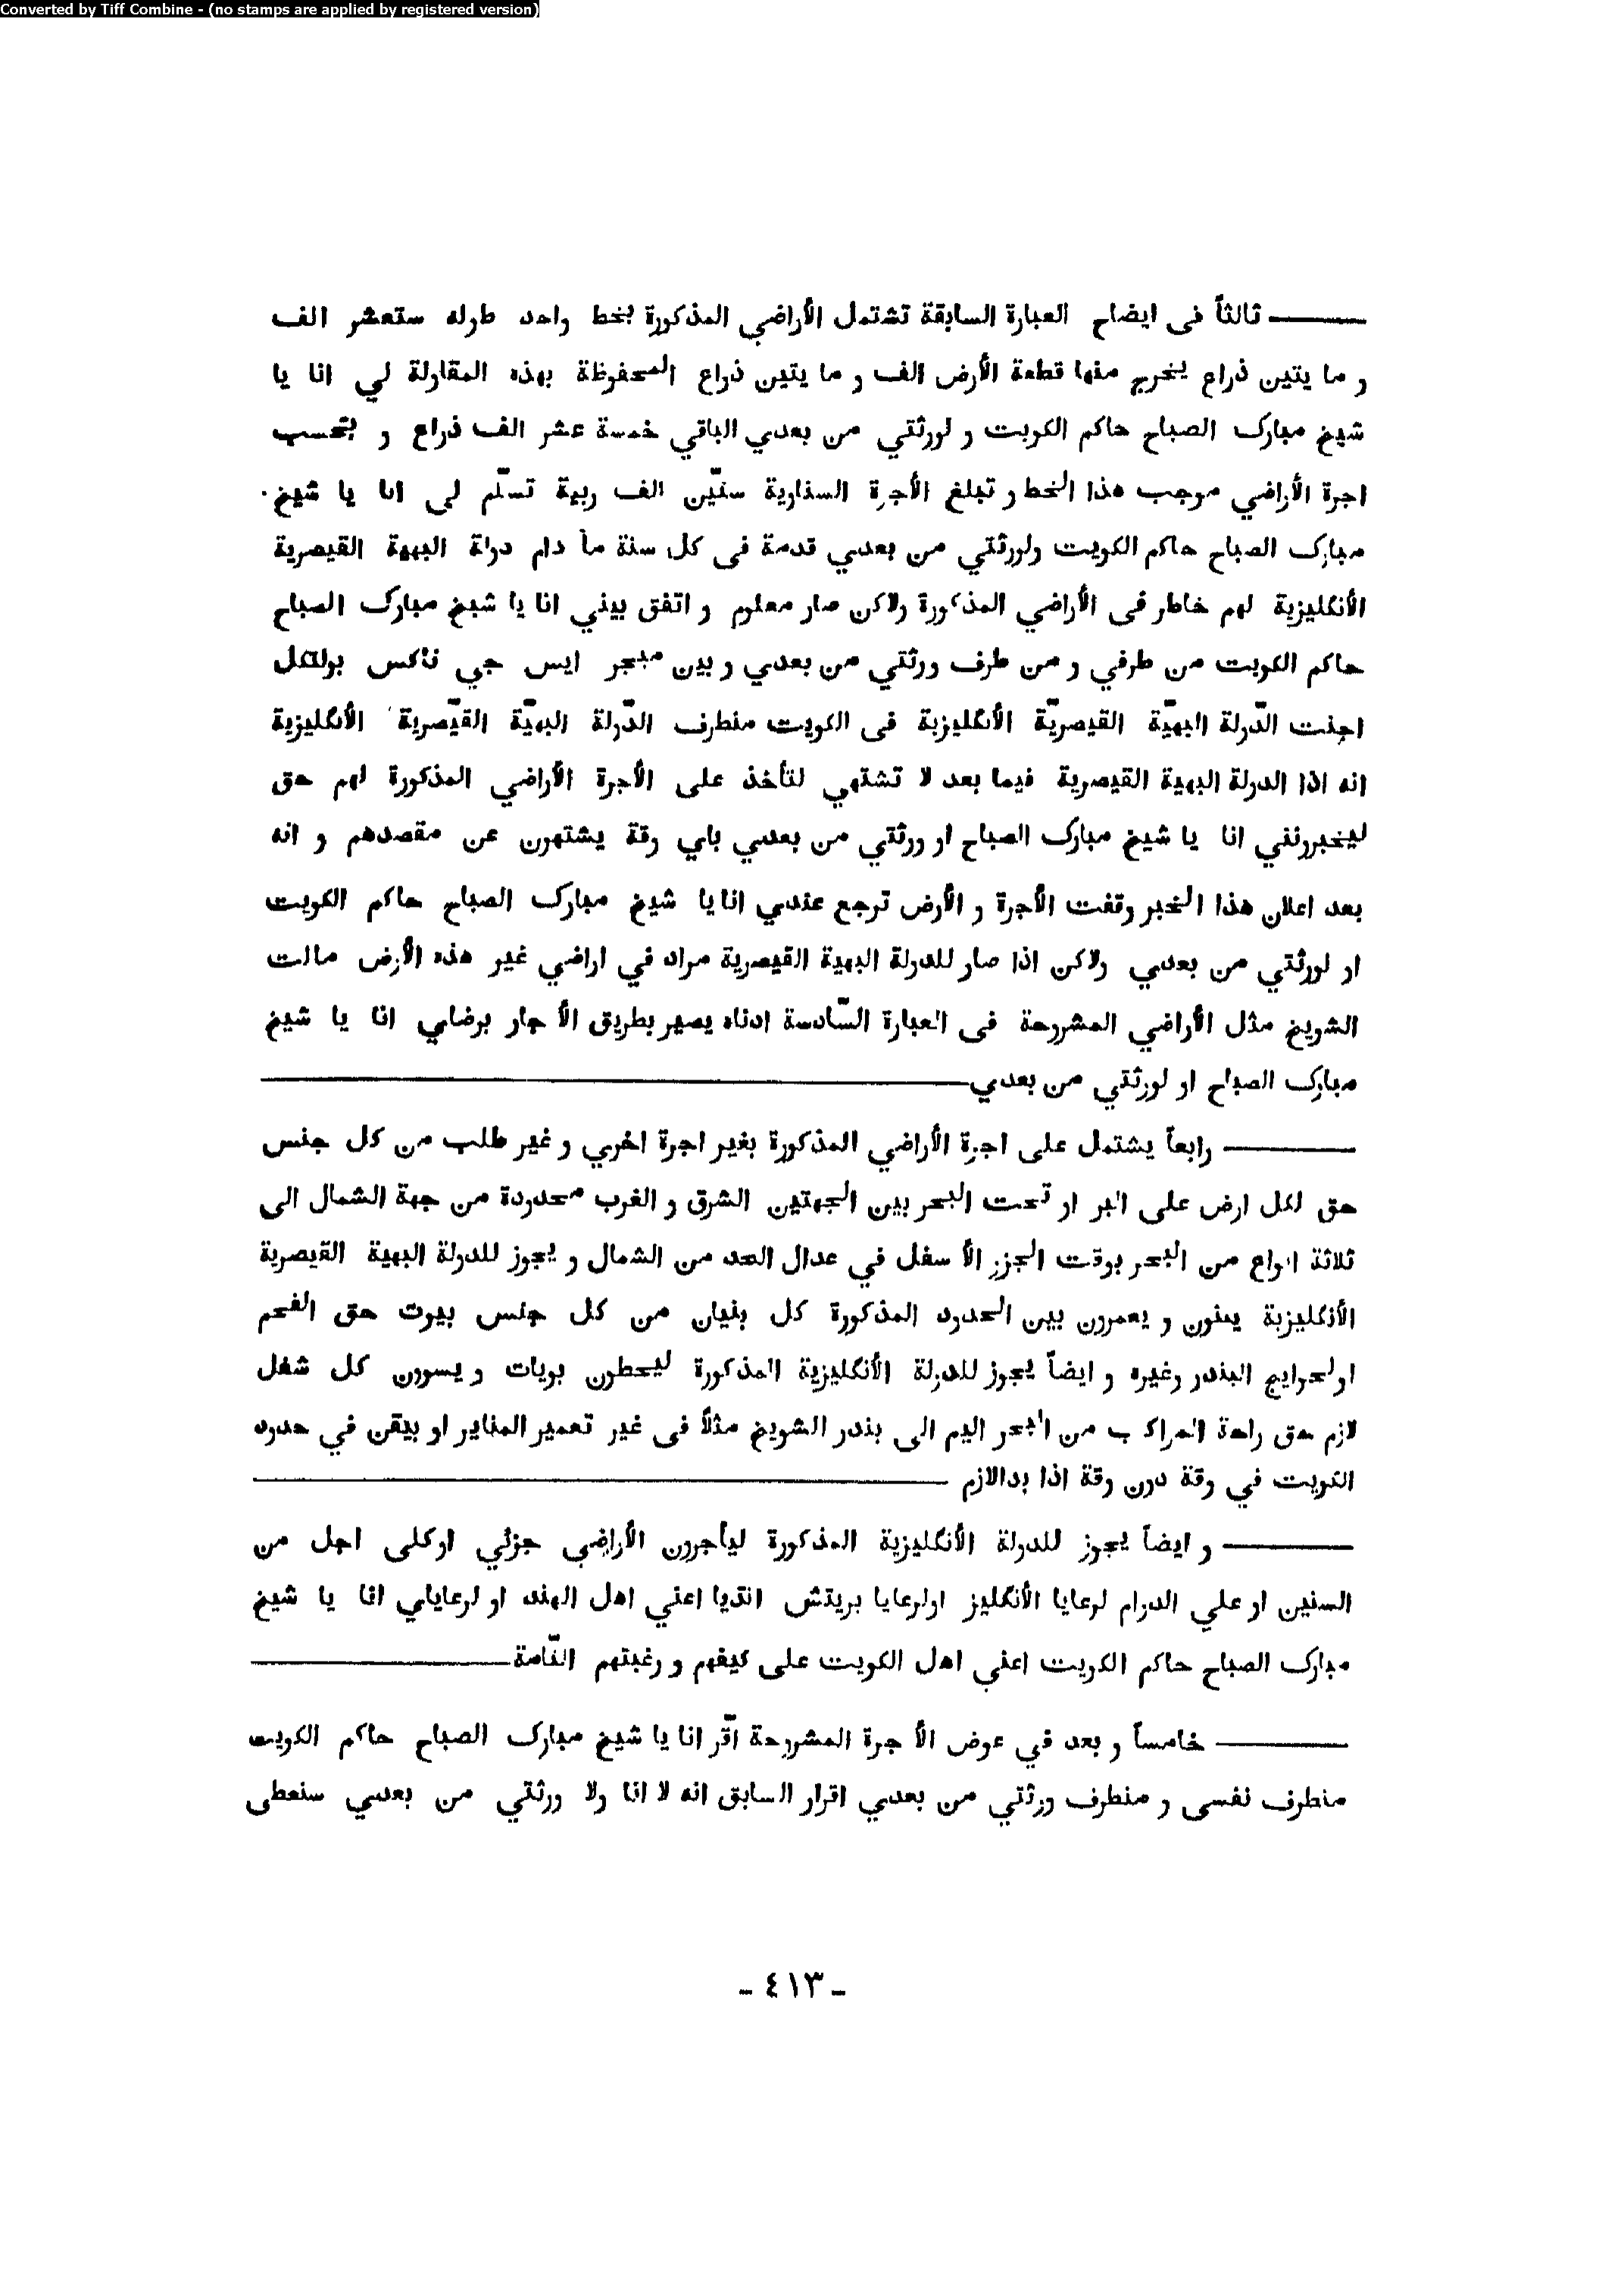 Converted by Tiff Combine - (no stamps are applied by registered version)
ثالثاً فى ايضاح العبارة السابقة تشتمل الأراضي المذكورة بخط واحد طوله ستعشر الف
و ما يتين ذراع يخرج منها قطعة الأرض الف و ما يتين ذراع المحفوظة بهذه المقاولة لي انا يا
شيخ مبارك الصباح حاكم الكويت و لورثتي من بعدي الباقي خمسة عشر الف ذراع و بتحسب
اجرة الأراضي موجب هذا الخط و تبلغ الأجرة السناوية ستّين الف ربية تسلّم لى انا يا شيخ
مبارك الصباح حاكم الكويت ولورثتي من بعدي قدمة فى كل سنة ما دام دولة البهية القيصرية
الأنكليزية لهم خاطر فى الأراضي المذكورة ولاكن صار معلوم و اتفق بيني انا يا شيخ مبارك الصباح
حاكم الكويت من طرفي و من طرف ورثتي من بعدي و بين ميجر ايس جي ناكس بولتكل
اجنت الدّولة البهيّة القيصريّة الأنكليزية فى الكويت منطرف الدّولة البهيّة القيّصرية الأنكليزية
انه اذا الدولة البهية القيصرية فيما بعد لا تشتهي لتأخذ على الأجرة الأراضي المذكورة لهم حق
ليخبرونني انا يا شيخ مبارك الصباح او ورثتي من بعدي باي وقة يشتهون عن مقصدهم و انه
بعد اعلان هذا الخبر وقفت الأجرة و الأرض ترجع عندي انا يا شيخ مبارك الصباح حاكم الكويت
او لورثتي من بعدي ولاكن اذا صار للدولة البهية القيصرية مراد في اراضي غير هذه الأرض مالت
الشويخ مثل الأراضي المشروحة فى العبارة السّادسة ادناه يصير بطريق الأ جار برضاي انا يا شيخ
مبارك الصباح او لورثتي من بعدي
رابعاً يشتمل على اجرة الأراضي المذكورة بغير اجرة اخرى و غير طلب من كل جنس
حق لكل ارض على البر او تحت البحر بين الجهتين الشرق و الغرب محدودة من جهة الشمال الى
ثلاثة انواع من البحر بوقت الجزر الأ سفل في عدال الحد من الشمال و يجوز للدولة البهية القيصرية
الأنكليزية يبنون و يعمرون بين الحدود المذكورة كل بنيان من كل جنس بيوت حق الفحم
اولحوايج البندر وغيره و ايضاً يجوز للدولة الأنكليزية المذكورة ليحطون بويات و يسوون كل شغل
لازم حق راحة المراكب من البحر اليم الى بندر الشويخ مثلاً فى غير تعمير المناير او بيقن في حدود
الكويت في وقة دون وقة اذا بدالازم
و ايضاً يجوز للدولة الأنكليزية المذكورة ليأجرون الأراضي جزئي اوكلى اجل من
السنين او علي الدوام لرعايا الأنكليز اولرعايا بريتش انديا اعني اهل الهند او لرعاياي انا يا شيخ
مبارك الصباح حاكم الكويت اعني اهل الكويت على كيفهم و رغبتهم التّامة
خامساً و بعد في عوض الأ جرة المشروحة اقّر انا يا شيخ مبارك الصباح حاكم الكويت
منطرف نفسى و منطرف ورثتي من بعدي اقرار السابق انه لا انا ولا ورثتي من بعدي سنعطى
- ٤١٣ -